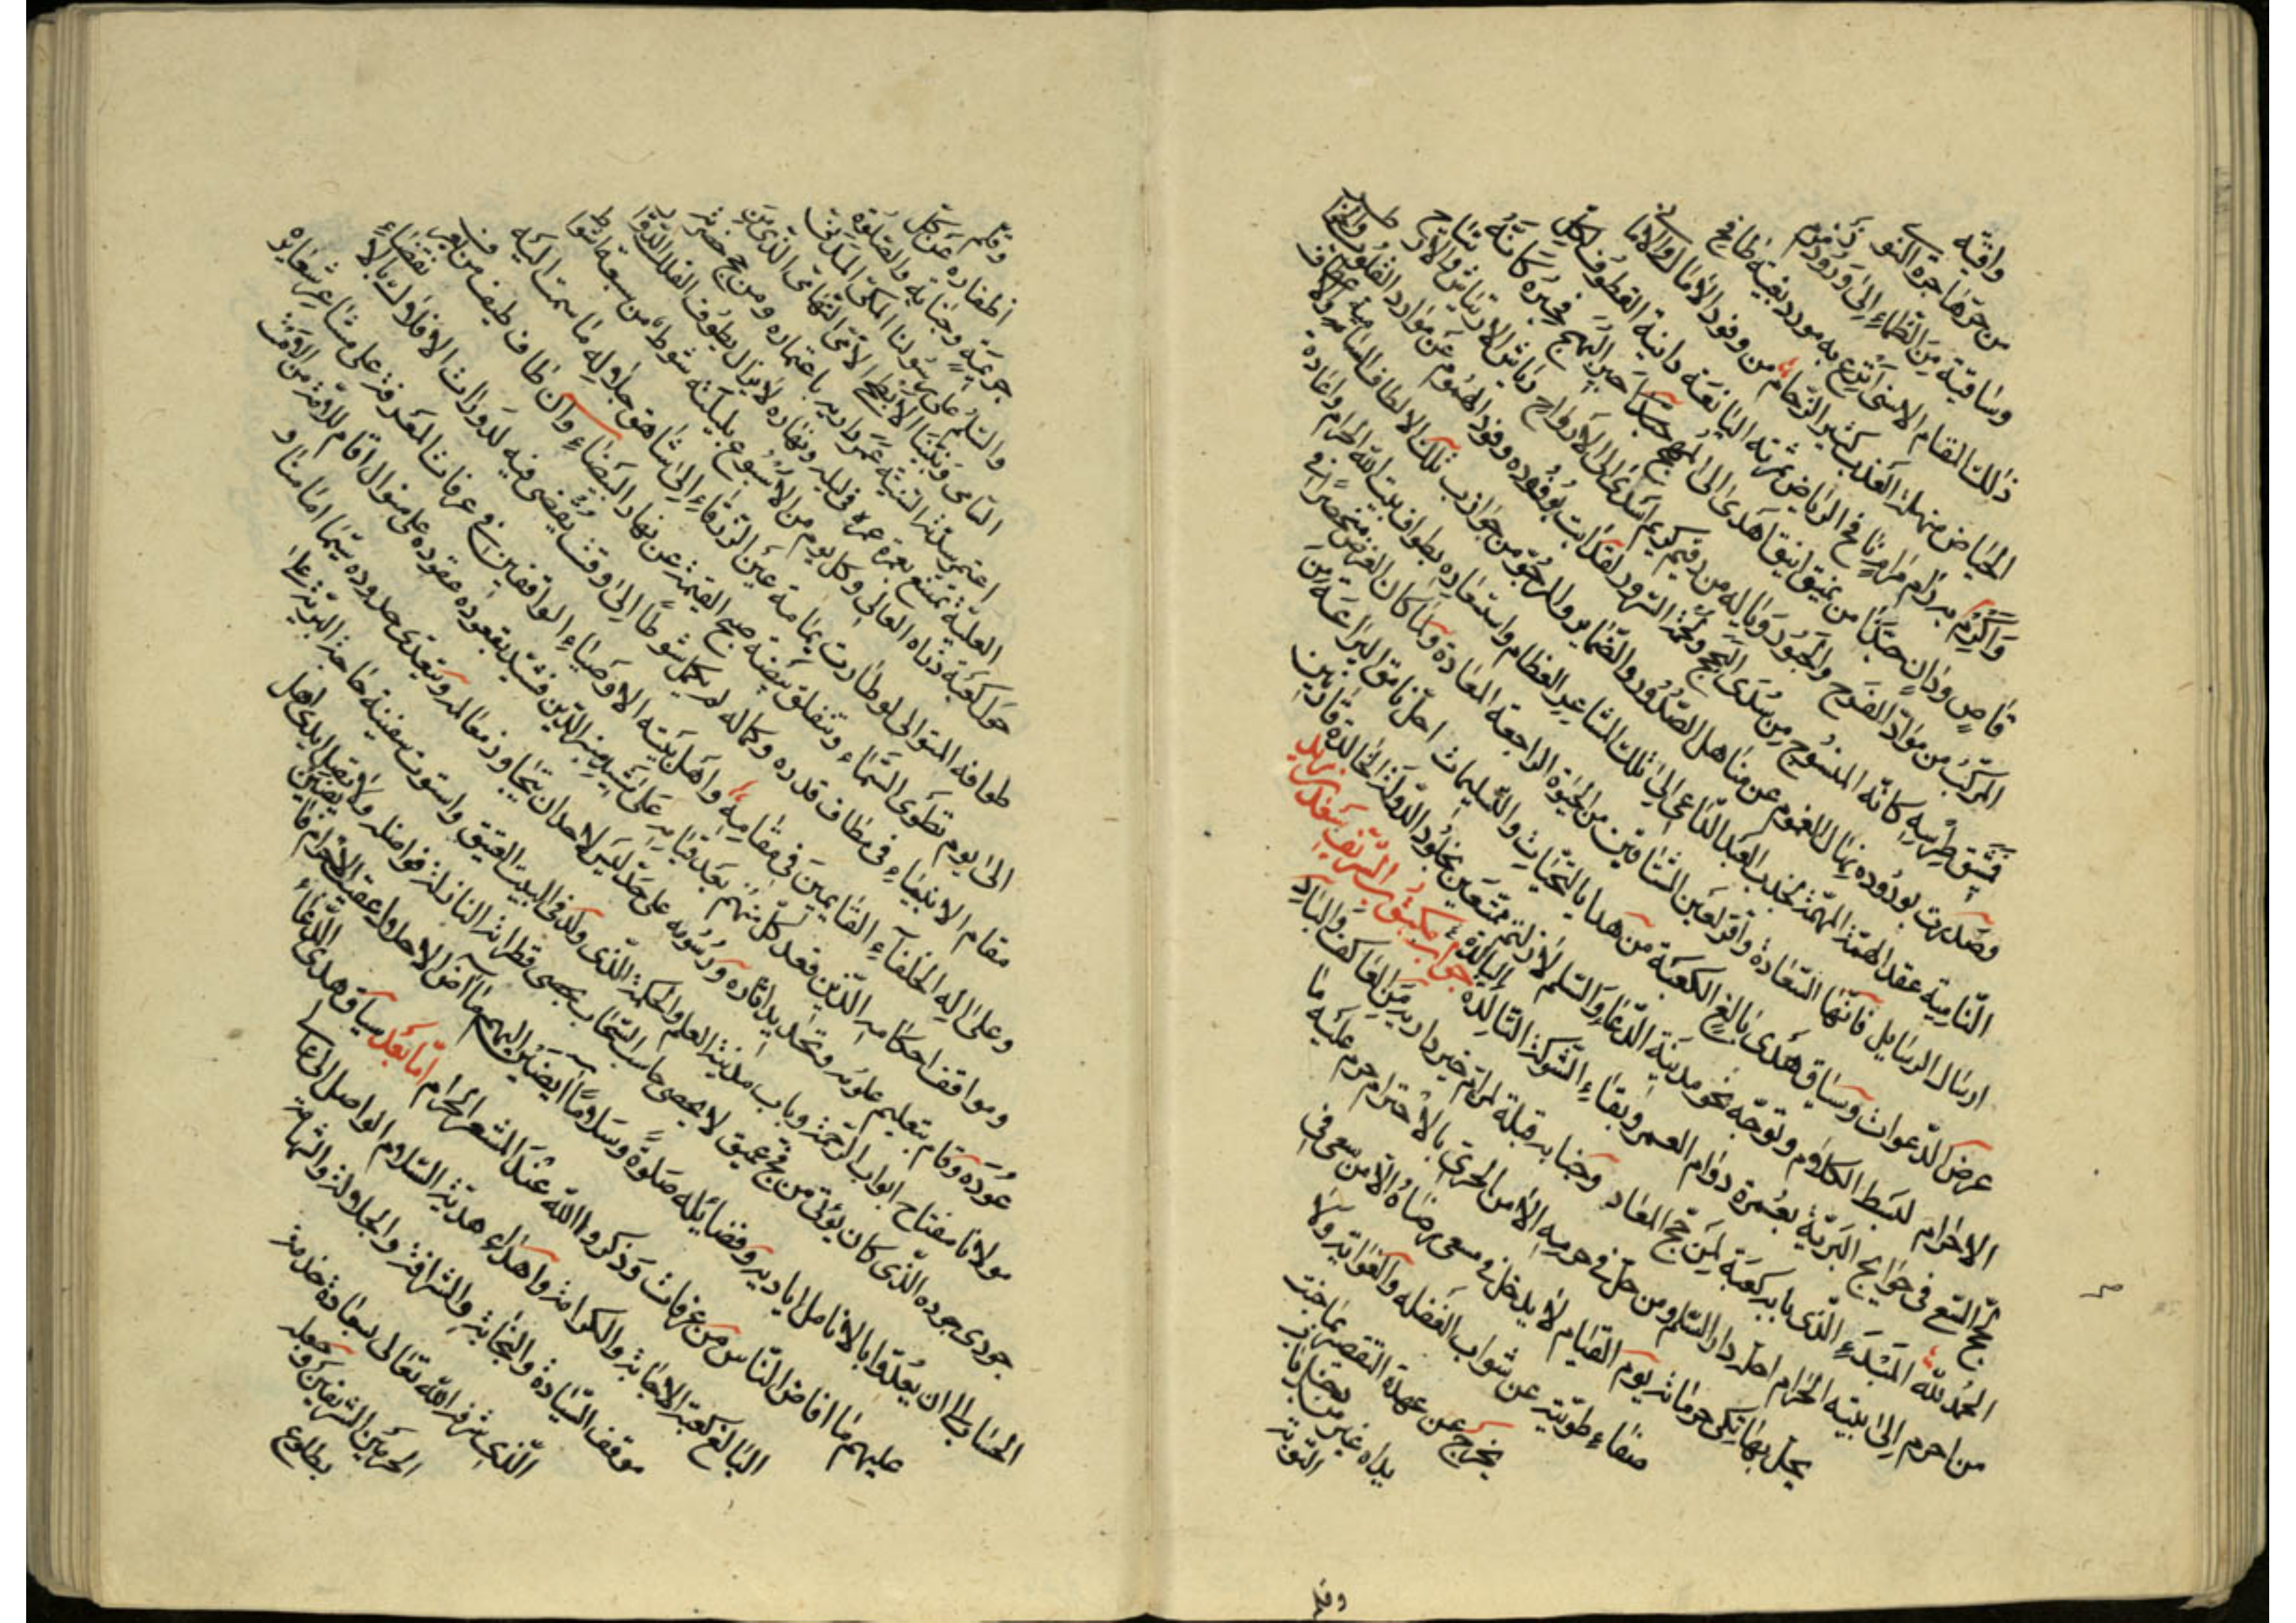 واقية
من حرّ هاجرة النوى
وساقية من الظماء إلى ورود زمزم
ذلك المقام الاسنى اترع به مورد بغية طافح
الحياض منهله العذب كثير الزحام من وفود الآمال والاماني
واكرم به رام مرام الرياض ثمرته اليانعة دانية القطوف لكل
قاص ودان حبذا من نميق انيق اهدى الى المهج حبر البهج في حبره كانه
المركب من مواد الفرح والحبور وياله من رقيم كريم اسدى الى الارواح رياش الارتياش والارتياح
فشق طرسه كانه المنسوج من سدى البهج ولحمة السرور لقد ابت بوفوده وفود الهموم عن موارد القلوب
وصدرت بوروده نهال الغموم عن مناهل الصدور والضماير وللمرجو من جواذب تلك الالطاف السامية
النامية عقد الهمة المهمة بجذب العبد الداعي الى تلك المشاعر العظام واستسعاده بطواف بيت الله الحرام واعاده
ارسال الرسايل فانها السعادة واقر لعين المشتاقين من الحيوة الراجعة المعادة ولما كان الغرض منحصرا في
عرض الدعوات وسياق هدى بالغ الكعبة من هدايا التحيات والتسليمات احل نامق اليراعة من
الاحرام لبسط الكلام وتوجه نحو مدينة الدعاء والسلم لا زلتم ممتعين بخلود الدولة الخالدة قارنين
في حوايج البرية بعمرة دوام العمر وبقاء الشوكة التالدة جواب مكتوب الشريف سعد بن زيد
الحمد لله المبدئ الذي بابه كعبة لمن حج المعاد وجنابه قبلة لمرام خير داريه من العاكف والباد
من احرم الى بيته الحرام احله دار السلم ومن حل في حرمه الامن الحري بالاحترام حرم عليه ما
يحل بهاتكي حرماته يوم القيام لا يدخل في مسعى رضاه الا من سعى في
صفاء طويته عن شوايب الغفلة والغواية ولا
يخرج عن عهدة التقصير بما جنت
يداه غير من
التوبة
وقلم
اظفاره عن كل
جريمة وجناية والصلوة
والسلم على رسولنا المكي المدني
النامي ونبينا الابطحي الامي التهامي الذي من
اعتمر سدته السنية عمر داريه باعتماره ومن حج حضرته
العلية تمتع بعمرة عمره في ليله ونهاره لا يزال يطوف الفلك الدوار
حول كعبة ذراه العالي وكل يوم من الاسبوع بليلته شوط من سبعة اشواط
طوافه المتوالي لو طارت يمامة عين الزرقاء الى شاهق جلاله ما سمت اليه
الى يوم تطوى السماء وتنفلق بيضة صبح القيمة عن نهار البيضاء وان طاف طيف من
مقام الانبياء في مطاف قدره وكماله لم يكمل شوطا الى وقت يقضى فيه لدورات الافلاك بالانقضاء
وعلى اله الخلفاء القايمين في مقامه واهل بيته الاوصياء الواقفين في عرفات المعرفة على مشاعر شعايره
ومواقف احكامه الذين قعد كل منهم بعد قيامه على تشييد منبر الدين فشيد بقعوده عقوده على منوال اقام للامة من الامت
عوده وقام بتعليم علومه وتحديد اثاره ورسومه على حد ليس لاحد ان يتجاوز معالمه ويتعدى حدوده سيما امامنا و
مولانا مفتاح ابواب الرحمة وباب مدينة العلم والحكمة الذي ولد في البيت العتيق واستوت سفينة حاجة البرية على
جودي جوده الذي كان يؤتى من فج عميق لا يحصي حاسب السحاب بحصى قطراته النازلة فواضله ولا تصل ايدي اهل
الحساب الى ان يعدوا بالانامل اياديه وفضايله صلوة وسلاما ايضين اليهم ما آض الاحلال عقب الاحرام فايضين
عليهم ما افاض الناس من عرفات وذكروا الله عند المشعر الحرام اما بعد سياق هدى الدعاء
البالغ كعبة الاجابة والكرامة واهداء هدية السلام الواصل الى
موقف السيادة والنجابة والشرافة والجلالة والشهامة
الذي شرفه الله تعالى بسعادة خدمة
الحرمين الشريفين وجعله
بطلوع